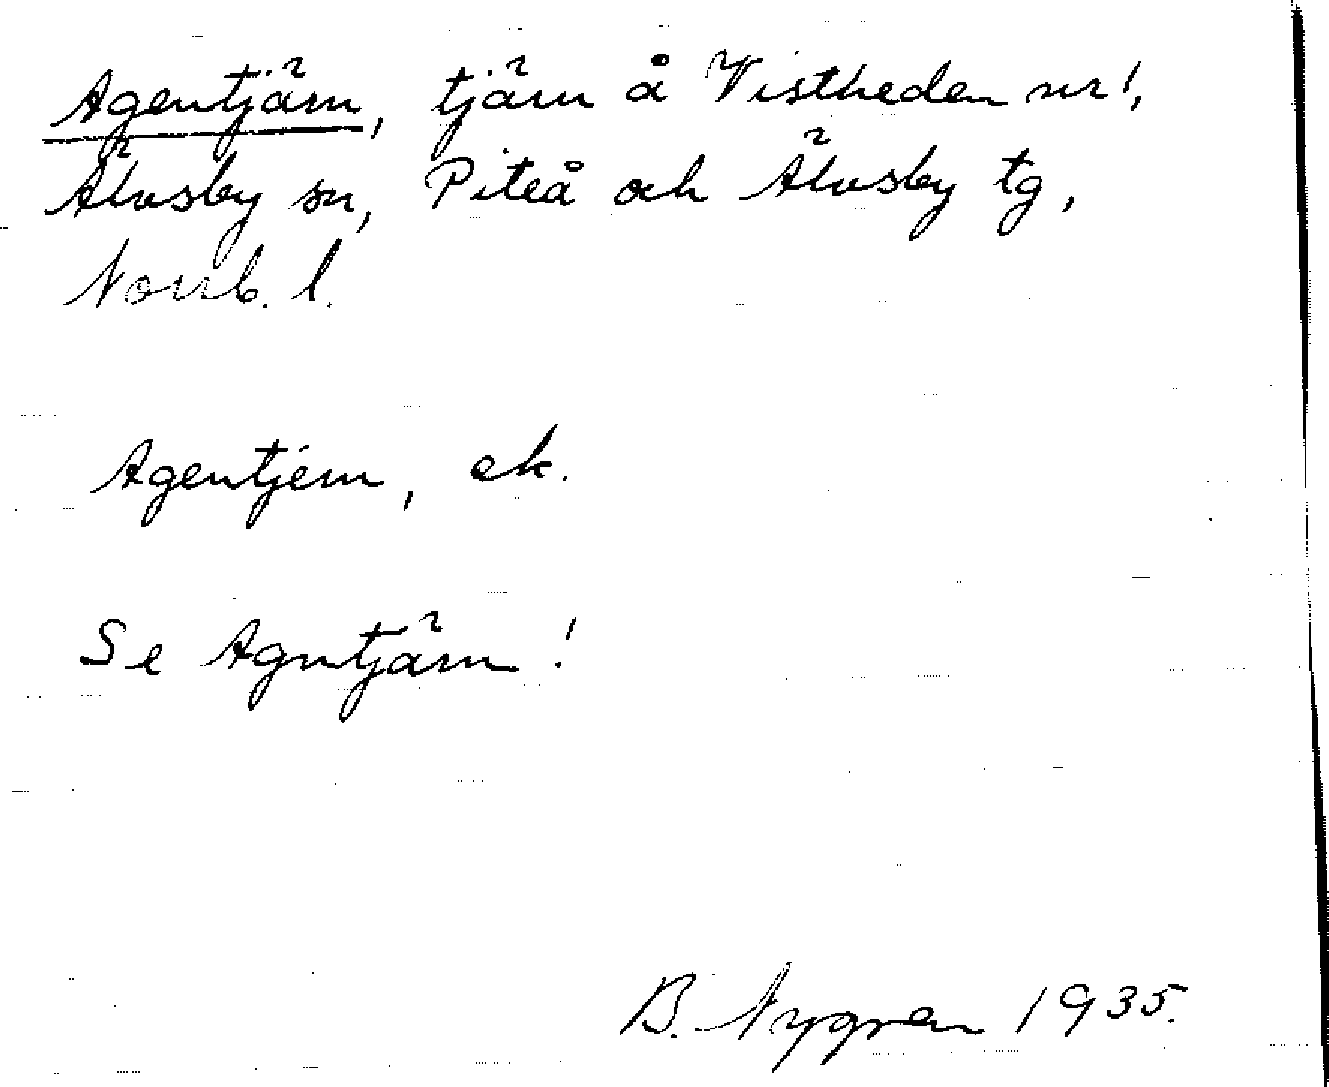 Agentjärn, tjärn å Vistheden nr 1,
Älvsby sn, Piteå och Älvsby tg,
Norrb. l.
Agentjern, ek.
Se Agntjärn !
B. Nygren 1935.